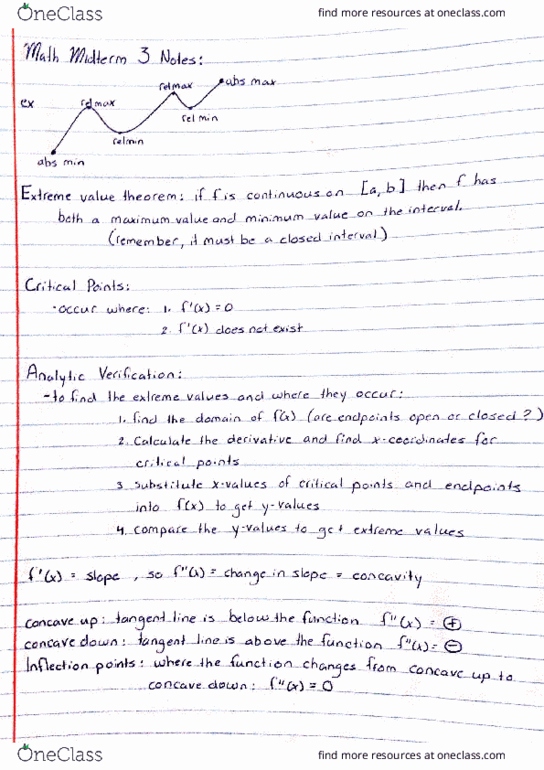 OneClass
find more resources at oneclass.com
Math Midterm 3 Notes:
ex
rel max
rel max
abs max
rel min
rel min
abs min
Extreme value theorem: if f is continuous on [a, b] then f has
both a maximum value and minimum value on the interval.
(remember, it must be a closed interval)
Critical Points:
·occur where: 1. f'(x) = 0
2. f'(x) does not exist
Analytic Verification:
-to find the extreme values and where they occur:
1. find the domain of f(x) (are endpoints open or closed?)
2. Calculate the derivative and find x-coordinates for
critical points
3. Substitute x-values of critical points and endpoints
into f(x) to get y-values
4. Compare the y-values to get extreme values
f'(x) = slope, so f"(x) = change in slope = concavity
concave up: tangent line is below the function f"(x) = ⊕
concave down: tangent line is above the function f"(x) = ⊖
Inflection points: where the function changes from concave up to
concave down: f"(x) = 0
OneClass
find more resources at oneclass.com